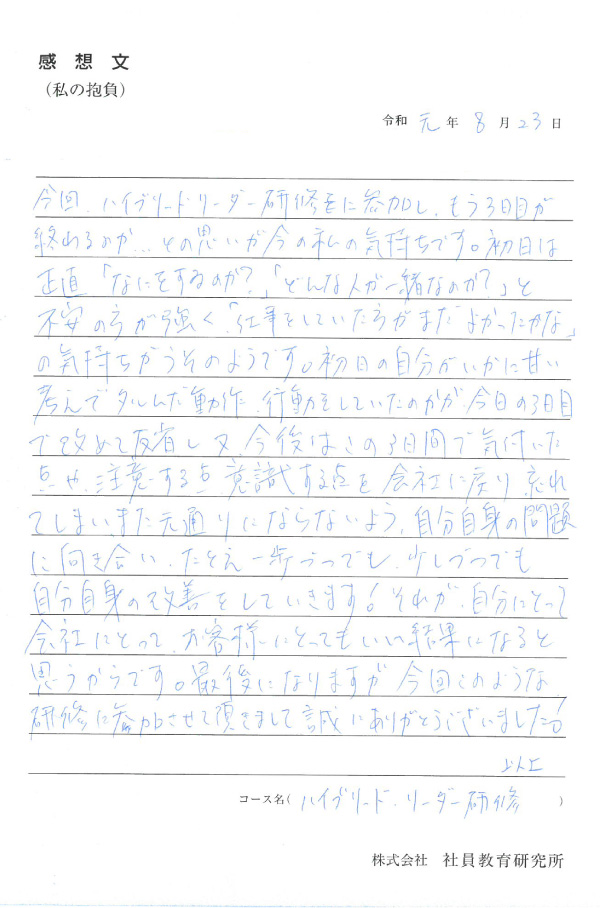 感想文
（私の抱負）
令和 元 年 8 月 23 日
今回、ハイブリードリーダー研修をに参加し、もう3日目が
終わるのか…その思いが今の私の気持ちです。初日は
正直「なにをするのか?」「どんな人が一緒なのか?」と
不安の方が強く、「仕事をしていた方がまだよかったかな」
の気持ちがうそのようです。初日の自分がいかに甘い
考えでタルんだ動作、行動をしていたのかが今日の3日目
で改めて反省し又、今後はこの3日間で気付いた
点や、注意する点、意識する点を会社に戻り忘れ
てしまい、また元通りにならないよう、自分自身の問題
に向き合い、たとえ一歩づつでも、少しづつでも
自分自身の改善をしていきます!それが、自分にとって
会社にとって、お客様にとってもいい結果になると
思うからです。最後になりますが今回このような
研修に参加させて頂きまして誠にありがとうございました!
以上
コース名（ ハイブリード・リーダー研修 ）
株式会社 社員教育研究所